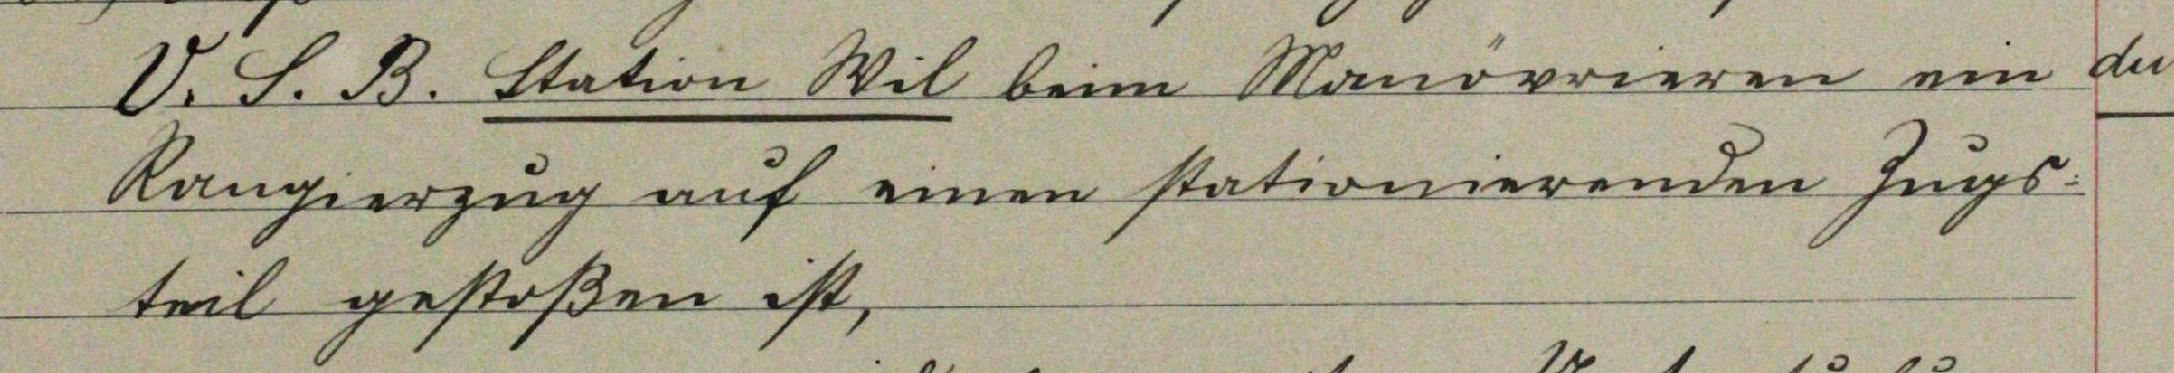 V. S. B. Station Wil beim Manövrieren ein
Rangierzug auf einen stationierenden Zugs-
teil gestoßen ist,